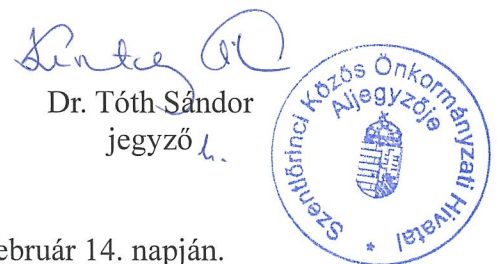 Dr. Tóth Sándor
jegyző h.
Szentlőrinci Közös Önkormányzati Hivatal *
Aljegyzője
ebruár 14. napján.